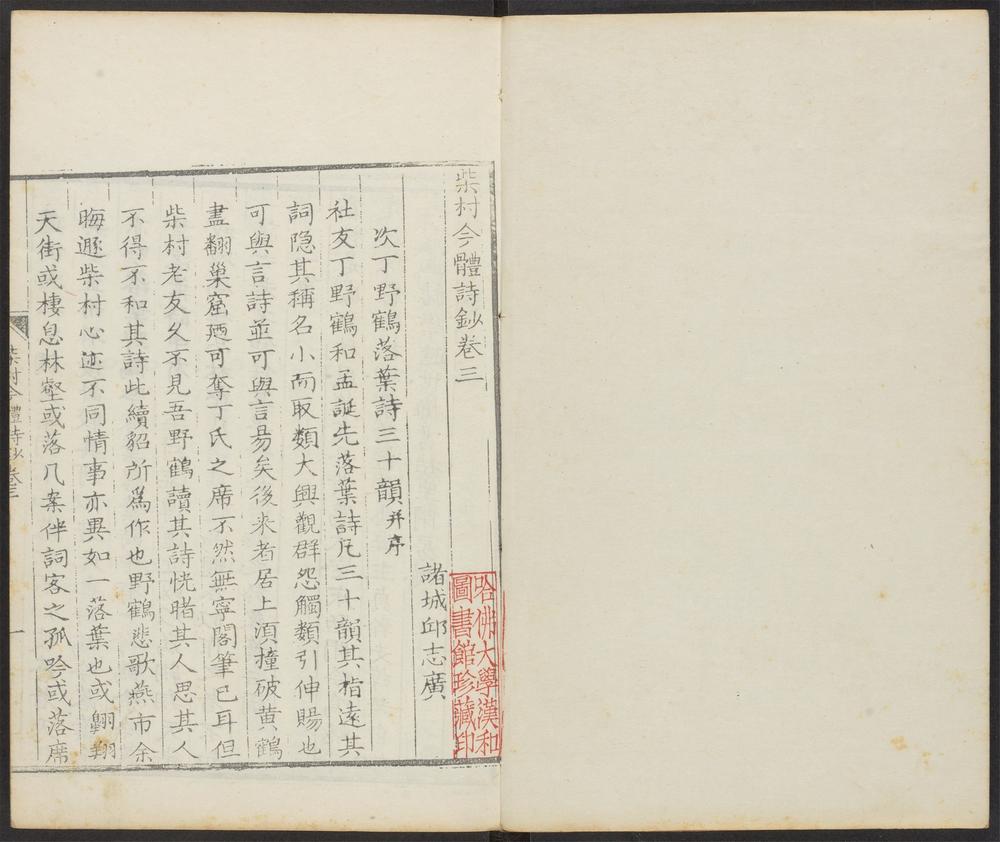 柴村今體詩鈔卷三
諸城邱志廣
次丁野鶴落葉詩三十韻并序
社友丁野鶴和孟誕先落葉詩凡三十韻其指遠其
詞隐其稱名小而取類大興觀群怨觸類引伸賜也
可與言詩並可與言昜矣後来者居上湏撞破黄鶴
盡翻巢窟廼可奪丁氏之席不然無寧閣筆已耳但
柴村老友久不見吾野鶴讀其詩恍睹其人思其人
不得不和其詩此續貂所爲作也野鶴悲歌燕市余
晦遯柴村心迹不同情事亦異如一落葉也或翺翔
天街或棲息林壑或落几案伴詞客之孤吟或落席
柴村今體詩鈔卷三
一
哈佛大學漢和
圖書館珍藏印